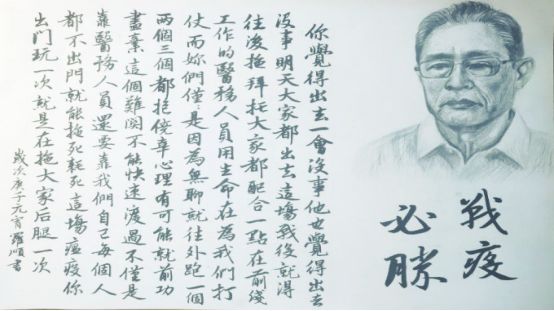 戰疫
必勝
你覺得出去一會沒事他也覺得出去
沒事明天大家都出去這場戰役就得
往後拖拜托大家都配合一點在前綫
工作的醫務人員用生命在為我們打
仗而妳們僅是因為無聊就往外跑一個
兩個三個都抱僥幸心理有可能就前功
盡棄這個難関不能快速渡過不僅是
靠醫務人員還要靠我們自己每個人
都不出門就能拖死耗死這場瘟疫你
出門玩一次就是在拖大家后腿一次
歲次庚子元宵羅順書